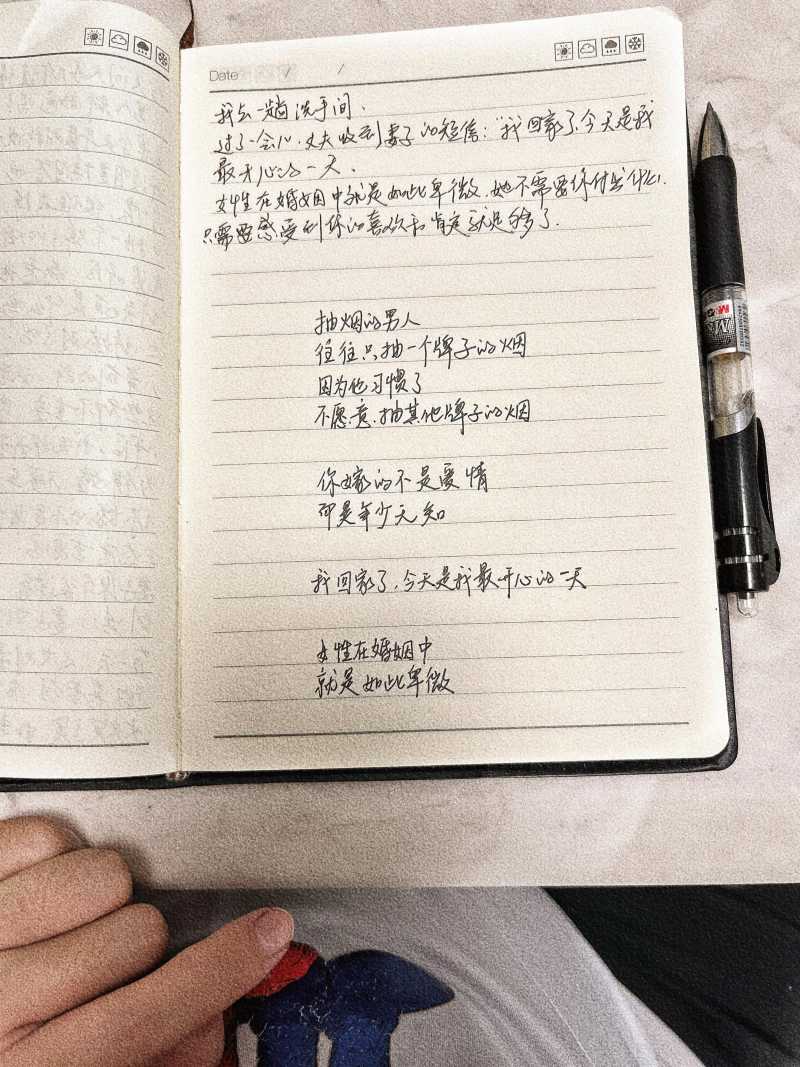 Date / /
我去一趟洗手间.
过了一会儿,丈夫收到妻子的短信:"我回家了,今天是我
最开心的一天.
女性在婚姻中就是如此卑微.她不需要你付出什么.
只需要感受到你的喜欢和肯定就足够了.
抽烟的男人
往往只抽一个牌子的烟
因为他习惯了
不愿意抽其他牌子的烟
你嫁的不是爱情
即是年少无知
我回家了,今天是我最开心的一天
女性在婚姻中
就是如此卑微
M&G